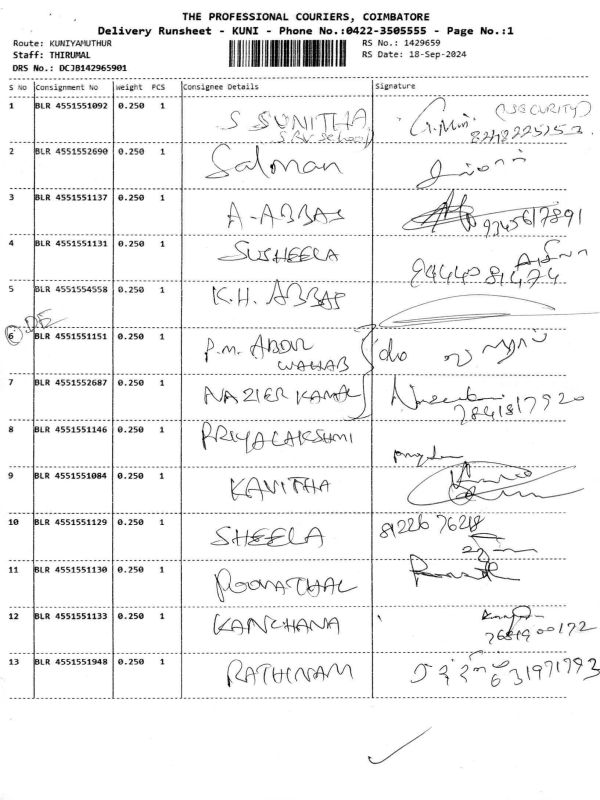 THE PROFESSIONAL COURIERS, COIMBATORE
Delivery Runsheet - KUNI - Phone No.:0422-3505555 - Page No.:1
Route: KUNIYAMUTHUR RS No.: 1429659
Staff: THIRUMAL RS Date: 18-Sep-2024
DRS No.: DCJB142965901
S No Consignment No Weight PCS Consignee Details Signature
1 BLR 4551551092 0.250 1 S SUNITHA (SECURITY)
8248225253
2 BLR 4551552690 0.250 1 Salman
3 BLR 4551551137 0.250 1 A-ABBAS 9345617891
4 BLR 4551551131 0.250 1 SUSHEELA 9444081474
5 BLR 4551554558 0.250 1 K.H. ABBAS
6 BLR 4551551151 0.250 1 P.M. ABDUL
WAHAB
7 BLR 4551552687 0.250 1 NAZIER KAMAL 7841817920
8 BLR 4551551146 0.250 1 PRIYALAKSHMI
9 BLR 4551551084 0.250 1 KAVITHA
10 BLR 4551551129 0.250 1 SHEELA 8122676218
11 BLR 4551551130 0.250 1 POOVATHAL
12 BLR 4551551133 0.250 1 KANCHANA
7681900172
13 BLR 4551551948 0.250 1 RATHINAM 631971793